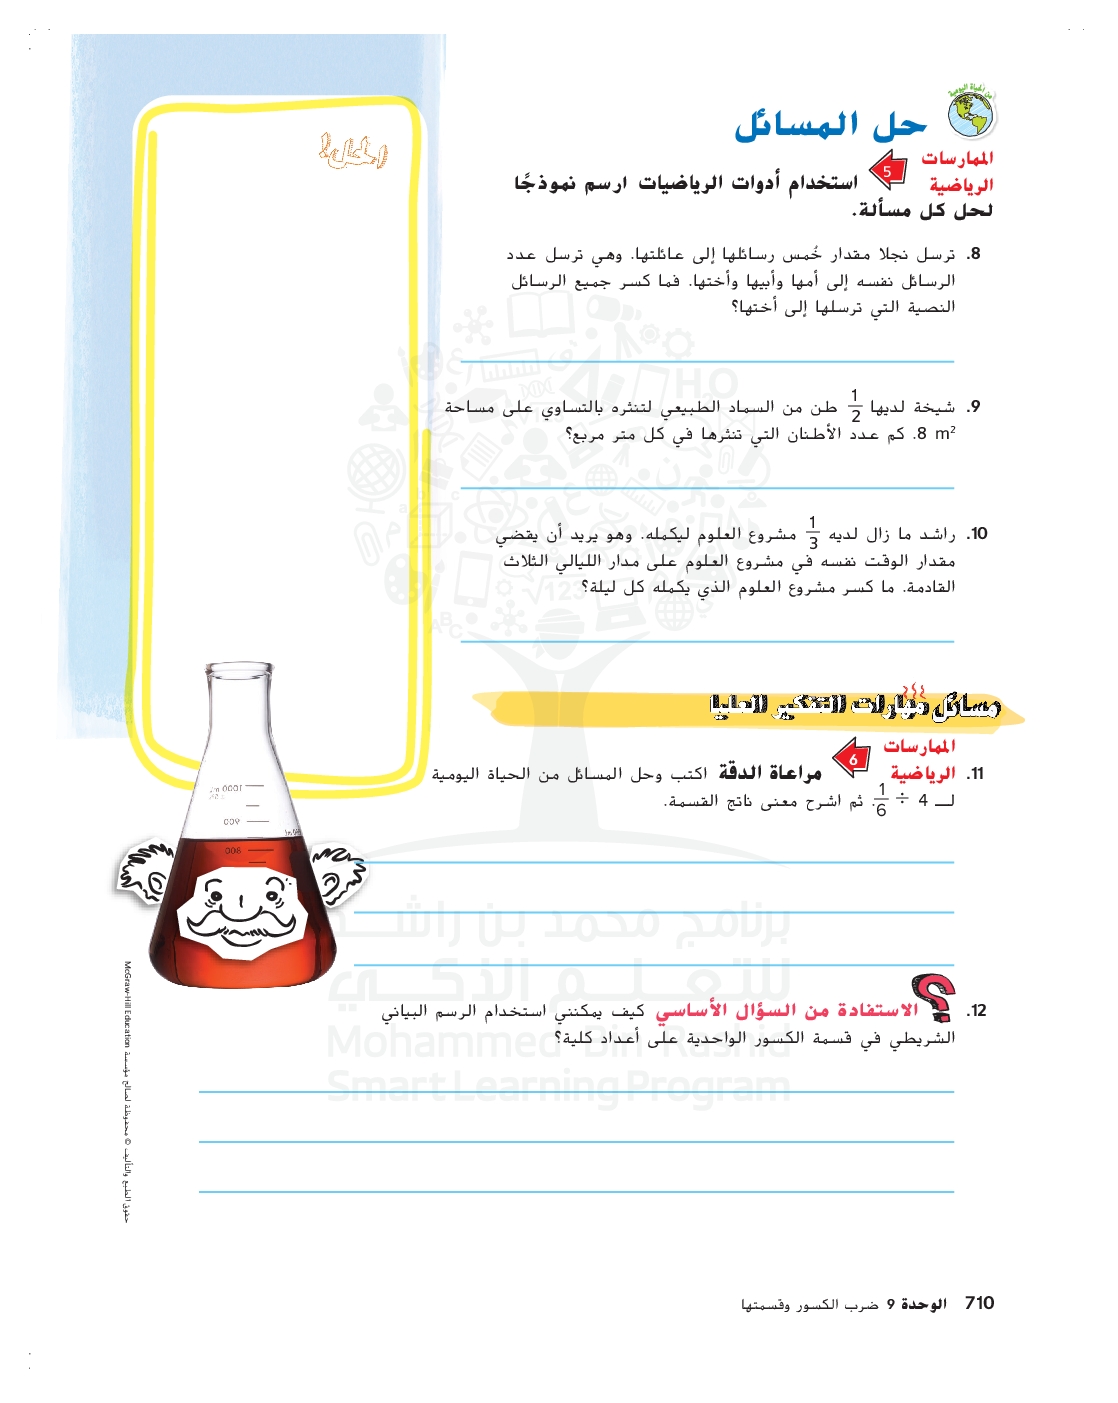 من الحياة اليومية
حل المسائل
الممارسات الرياضية 5 استخدام أدوات الرياضيات ارسم نموذجًا
لحل كل مسألة.
الحل!
8. ترسل نجلا مقدار خُمس رسائلها إلى عائلتها. وهي ترسل عدد
الرسائل نفسه إلى أمها وأبيها وأختها. فما كسر جميع الرسائل
النصية التي ترسلها إلى أختها؟
9. شيخة لديها 1/2 طن من السماد الطبيعي لتنثره بالتساوي على مساحة
8 m². كم عدد الأطنان التي تنثرها في كل متر مربع؟
10. راشد ما زال لديه 1/3 مشروع العلوم ليكمله. وهو يريد أن يقضي
مقدار الوقت نفسه في مشروع العلوم على مدار الليالي الثلاث
القادمة. ما كسر مشروع العلوم الذي يكمله كل ليلة؟
مسائل مهارات التفكير العليا
11. الممارسات الرياضية 6 مراعاة الدقة اكتب وحل المسائل من الحياة اليومية
لـ 4 ÷ 1/6. ثم اشرح معنى ناتج القسمة.
1000 ml
900
800
12. الاستفادة من السؤال الأساسي كيف يمكنني استخدام الرسم البياني
الشريطي في قسمة الكسور الواحدية على أعداد كلية؟
برنامج محمد بن راشد
للتعلم الذكي
Mohammed Bin Rashid
Smart Learning Program
حقوق الطبع والتأليف © محفوظة لصالح مؤسسة McGraw-Hill Education
710 الوحدة 9 ضرب الكسور وقسمتها